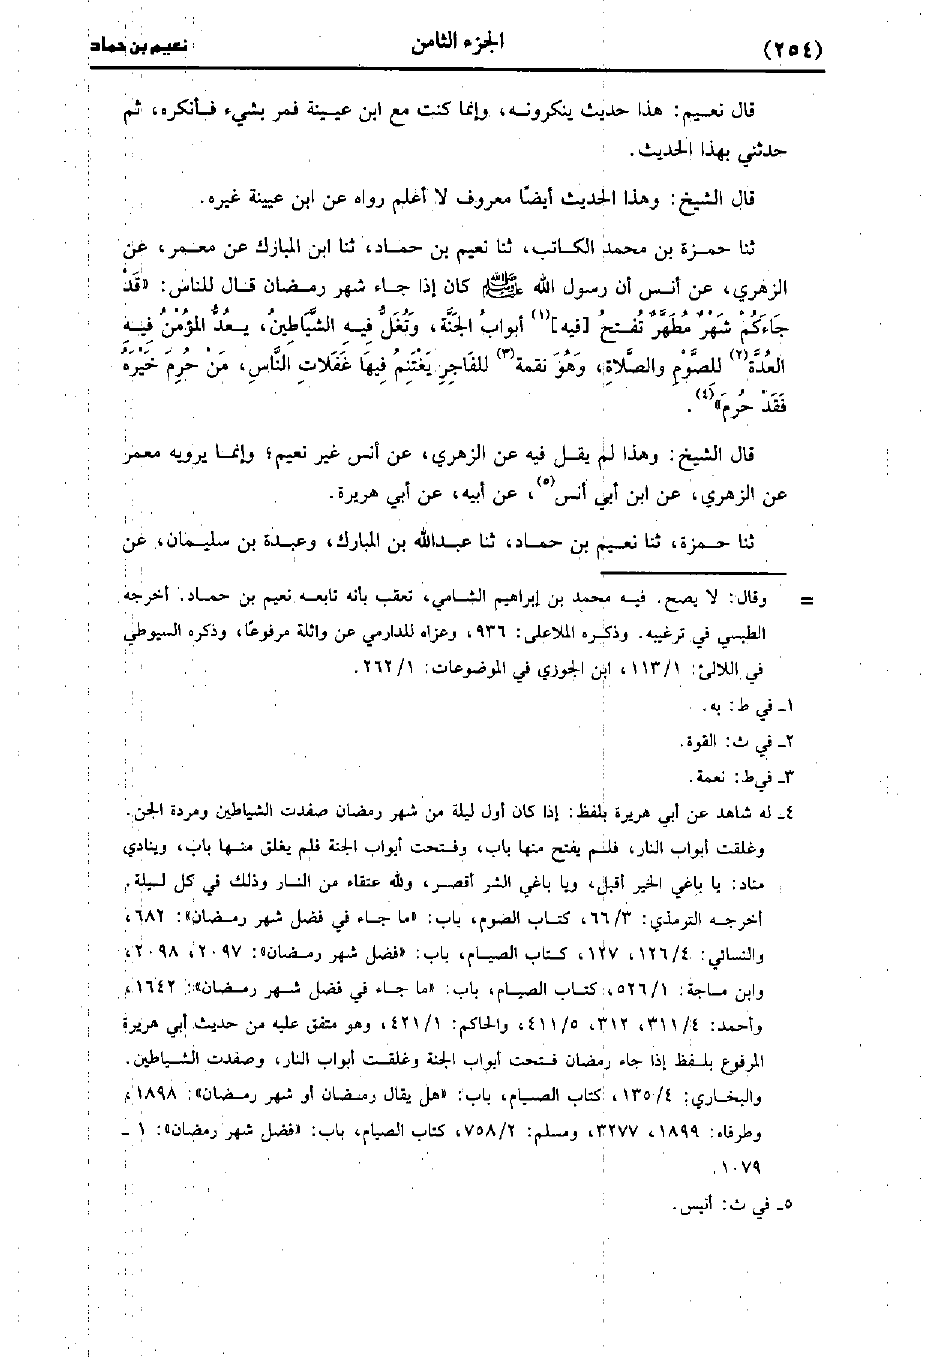 (٢٥٤) الجزء الثامن نعيم بن حماد
قال نعيم: هذا حديث ينكرونه، وإنما كنت مع ابن عيينة فمر بشيء فأنكره، ثم
حدثني بهذا الحديث.
قال الشيخ: وهذا الحديث أيضًا معروف لا أعلم رواه عن ابن عيينة غيره.
ثنا حمزة بن محمد الكاتب، ثنا نعيم بن حماد، ثنا ابن المبارك عن معمر، عن
الزهري، عن أنس أن رسول الله ﷺ كان إذا جاء شهر رمضان قال للناس: «قَدْ
جَاءَكُمْ شَهْرٌ مُطَهَّرٌ تُفتحُ [فيه](١) أبوابُ الجنَّة، وَتُغَلُّ فيهِ الشَّيَاطينُ، يعدُّ المؤمْنُ فِيهِ
العُدَّة(٢) للصَّوْمِ والصَّلاةِ، وَهُوَ نقمة(٣) للفَاجِرِ يَغْتَنِمُ فيهَا غَفَلات النَّاسِ، مَنْ حُرِمَ خَيْرَهُ
فَقَدْ حُرِمَ»(٤).
قال الشيخ: وهذا لم يقل فيه عن الزهري، عن أنس غير نعيم؛ وإنما يرويه معمر
عن الزهري، عن ابن أبي أنس(٥)، عن أبيه، عن أبي هريرة.
ثنا حمزة، ثنا نعيم بن حماد، ثنا عبدالله بن المبارك، وعبدة بن سليمان، عن
= وقال: لا يصح. فيه محمد بن إبراهيم الشامي، تعقب بأنه تابعه نعيم بن حماد. أخرجه
الطبسي في ترغيبه. وذكره الملاعلى: ٩٣٦، وعزاه للدارمي عن واثلة مرفوعًا، وذكره السيوطي
في اللالئ: ١١٣/١، ابن الجوزي في الموضوعات: ٢٦٢/١.
١ـ في ط: به.
٢ـ في ث: القوة.
٣ـ في ط: نعمة.
٤ـ له شاهد عن أبي هريرة بلفظ: إذا كان أول ليلة من شهر رمضان صفدت الشياطين ومردة الجن.
وغلقت أبواب النار، فلم يفتح منها باب، وفتحت أبواب الجنة فلم يغلق منها باب، وينادي
مناد: يا باغي الخير أقبل، ويا باغي الشر أقصر، ولله عتقاء من النار وذلك في كل ليلة.
أخرجه الترمذي: ٦٦/٣، كتاب الصوم، باب: «ما جاء في فضل شهر رمضان»: ٦٨٢،
والنسائي: ١٢٦/٤، ١٢٧، كتاب الصيام، باب: «فضل شهر رمضان»: ٢٠٩٧، ٢٠٩٨،
وابن ماجة: ٥٢٦/١، كتاب الصيام، باب: «ما جاء في فضل شهر رمضان»: ١٦٤٢،
وأحمد: ٣١١/٤، ٣١٢، ٤١١/٥، والحاكم: ٤٢١/١، وهو متفق عليه من حديث أبي هريرة
المرفوع بلفظ إذا جاء رمضان فتحت أبواب الجنة وغلقت أبواب النار، وصفدت الشياطين.
والبخاري: ١٣٥/٤، كتاب الصيام، باب: «هل يقال رمضان أو شهر رمضان»: ١٨٩٨،
وطرفاه: ١٨٩٩، ٣٢٧٧، ومسلم: ٧٥٨/٢، كتاب الصيام، باب: «فضل شهر رمضان»: ١ ـ
١٠٧٩.
٥ـ في ث: أنيس.